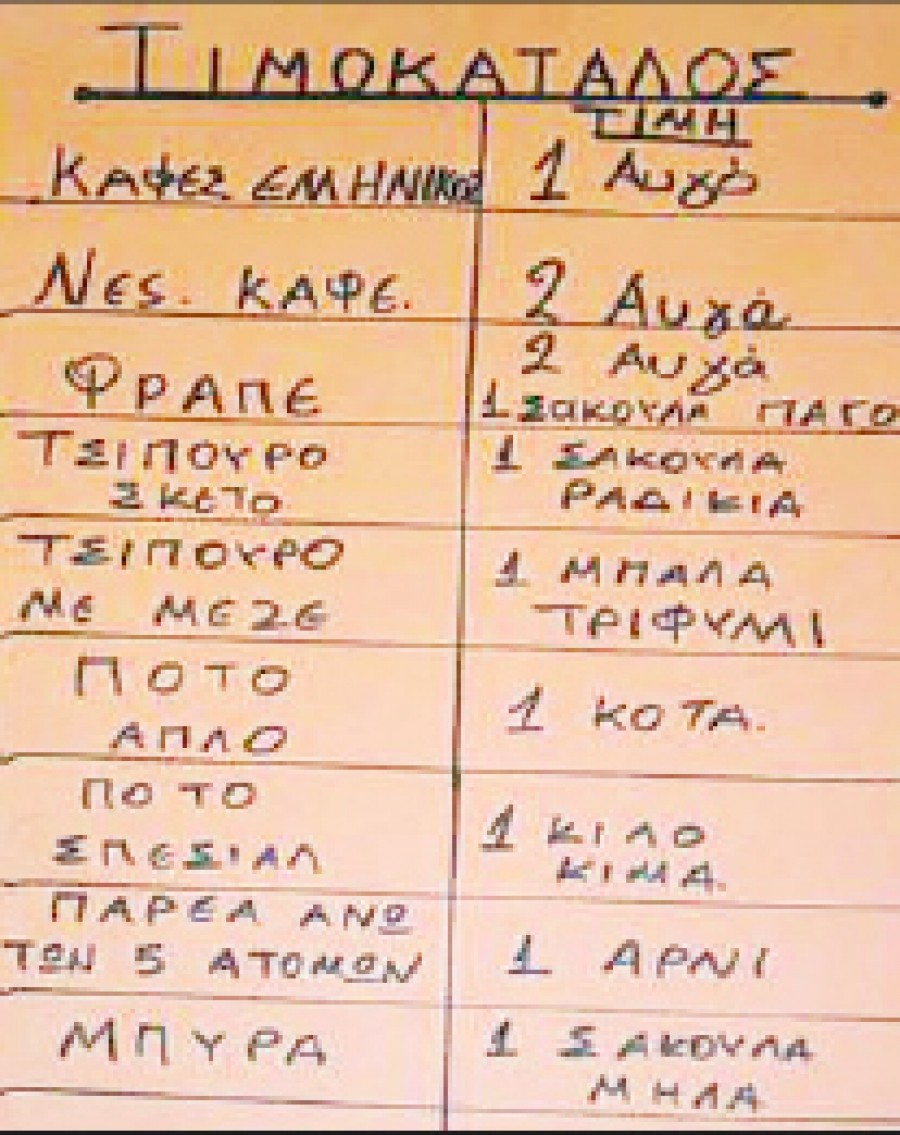 ΤΙΜΟΚΑΤΑΛΟΣ
ΤΙΜΗ
ΚΑΦΕΣ ΕΛΛΗΝΙΚΟΣ 1 Αυγό
Νες. ΚΑΦΕ. 2 Αυγά
ΦΡΑΠΕ 2 Αυγά
1 ΣΑΚΟΥΛΑ ΠΑΓΟ
ΤΣΙΠΟΥΡΟ 1 ΣΑΚΟΥΛΑ
ΣΚΕΤΟ ΡΑΔΙΚΙΑ
ΤΣΙΠΟΥΡΟ 1 ΜΠΑΛΑ
ΜΕ ΜΕΖΕ ΤΡΙΦΥΛΛΙ
ΠΟΤΟ
ΑΠΛΟ 1 ΚΟΤΑ.
ΠΟΤΟ 1 ΚΙΛΟ
ΣΠΕΣΙΑΛ ΚΙΜΑ.
ΠΑΡΕΑ ΑΝΩ
ΤΩΝ 5 ΑΤΟΜΩΝ 1 ΑΡΝΙ
ΜΠΥΡΑ 1 ΣΑΚΟΥΛΑ
ΜΗΛΑ